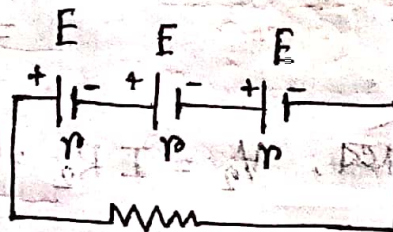 E E E
+ - + - + -
r r r